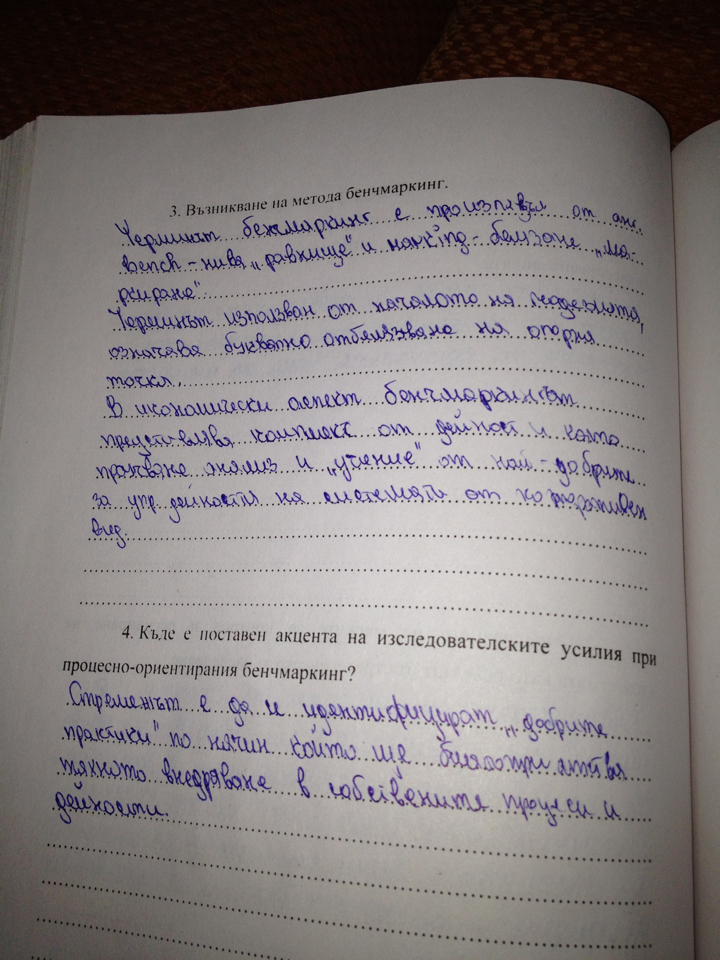 3. Възникване на метода бенчмаркинг.
Терминът бенчмаркинг е от анг.
Bench - ниво „равнище" и marking - белязане „ма-
ркиране".
Терминът използван от началото на геодезията,
означава буквално отбелязване на опорна
точка.
В икономически аспект бенчмаркингът
комплекс от дейности които
анализ и „учение" от най-добрите
за упр. дейността на системата от корпоративен
вид.
4. Къде е поставен акцента на изследователските усилия при
процесно-ориентирания бенчмаркинг?
Стремежът е да и идентифицират „добрите
практики" по начин който ще
тяхното внедряване в собствените процеси и
дейности.